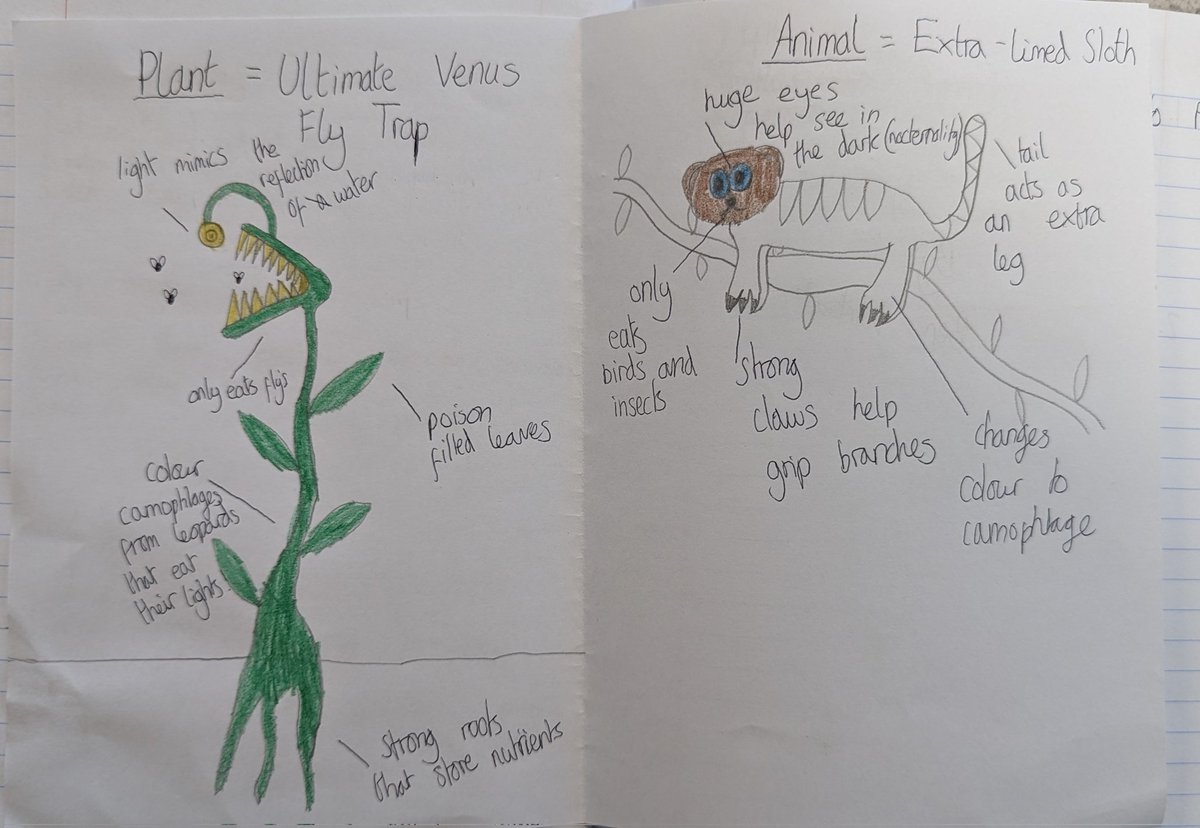 Plant = Ultimate Venus
Fly Trap
light mimics the
reflection
of a water
only eats fly's
poison
filled leaves
colour
camophlages
from leopards
that eat
their lights
strong roots
that store nutrients
Animal = Extra-limed Sloth
huge eyes
help see in
the dark (nocternality)
tail
acts as
an extra
leg
only
eats
birds and
insects
strong
claws help
grip branches
changes
colour to
camophlage